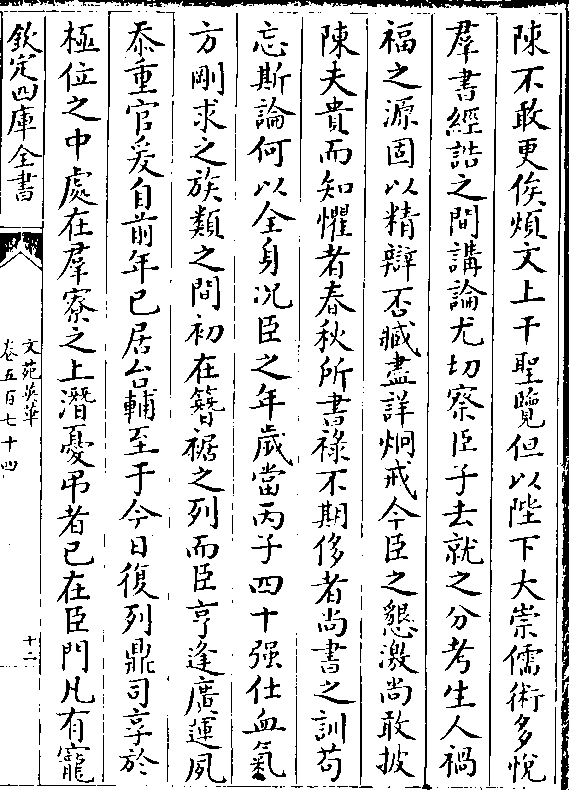 陳不敢更俟煩文上干聖覽但以陛下大崇儒術多悅
羣書經誥之間講論尤切察臣子去就之分考生人禍
福之源固以精辯否臧盡詳炯戒今臣之懇激尚敢披
陳夫貴而知懼者春秋所書祿不期侈者尚書之訓苟
忘斯論何以全身况臣之年歲當丙子四十强仕血氣
方剛求之族類之間初在簪裾之列而臣亨逢廣運夙
忝重官爰自前年已居台輔至于今日復列鼎司享於
極位之中處在羣寮之上潛憂弔者已在臣門凡有寵
欽定四庫全書
文苑英華
卷五百七十四
十二